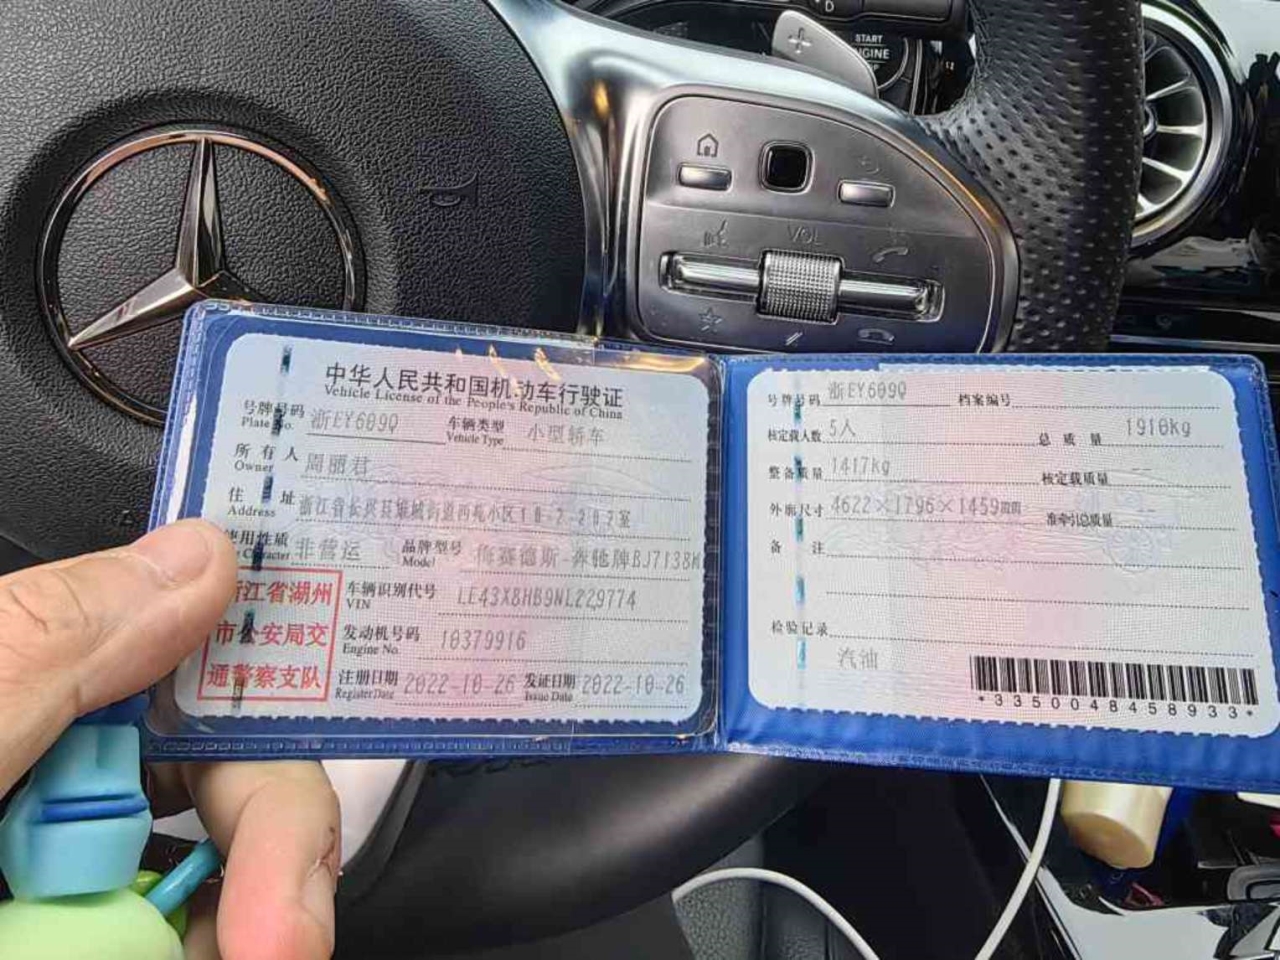 START
ENGINE
VOL
中华人民共和国机动车行驶证
Vehicle License of the People's Republic of China
号牌号码 浙EY609Q 车辆类型 小型轿车
Plate No. Vehicle Type
所有人 周丽君
Owner
住址 浙江省长兴县雉城街道西苑小区10-2-202室
Address
使用性质 非营运 品牌型号 梅赛德斯-奔驰牌BJ7138
Character Model
浙江省湖州
市公安局交
通警察支队
车辆识别代号 LE43X8HB9NL229774
VIN
发动机号码 10379916
Engine No.
注册日期 2022-10-26 发证日期 2022-10-26
Register Date Issue Date
号牌号码 浙EY609Q 档案编号
核定载人数 5人 总质量 1910kg
整备质量 1417kg 核定载质量 --
外廓尺寸 4622×1796×1459mm 准牵引总质量 --
备注
检验记录
汽油
*3350048458933*